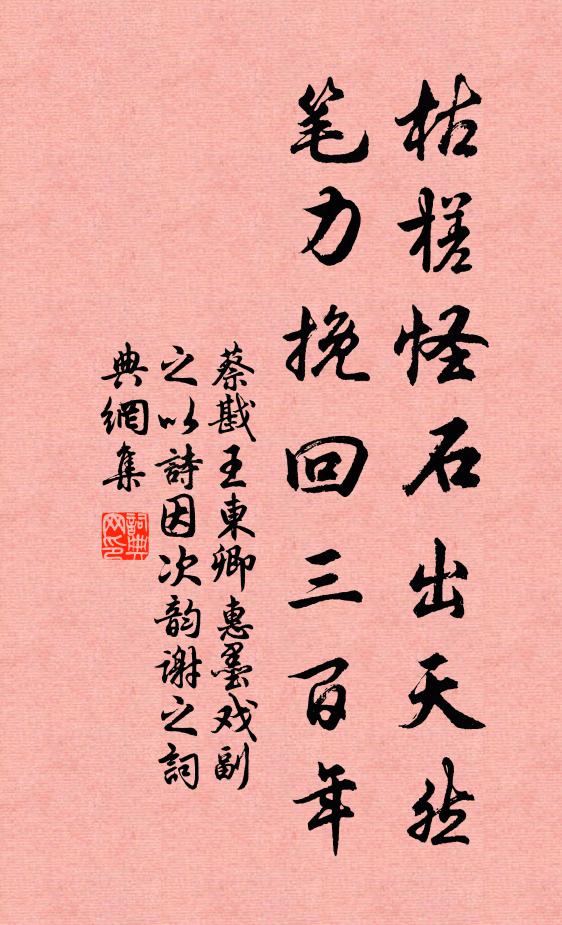 枯槎怪石出天然
笔力挽回三百年
蔡戡王東卿惠墨戏副
之以詩因次韵谢之詞
典網集
詞典网印